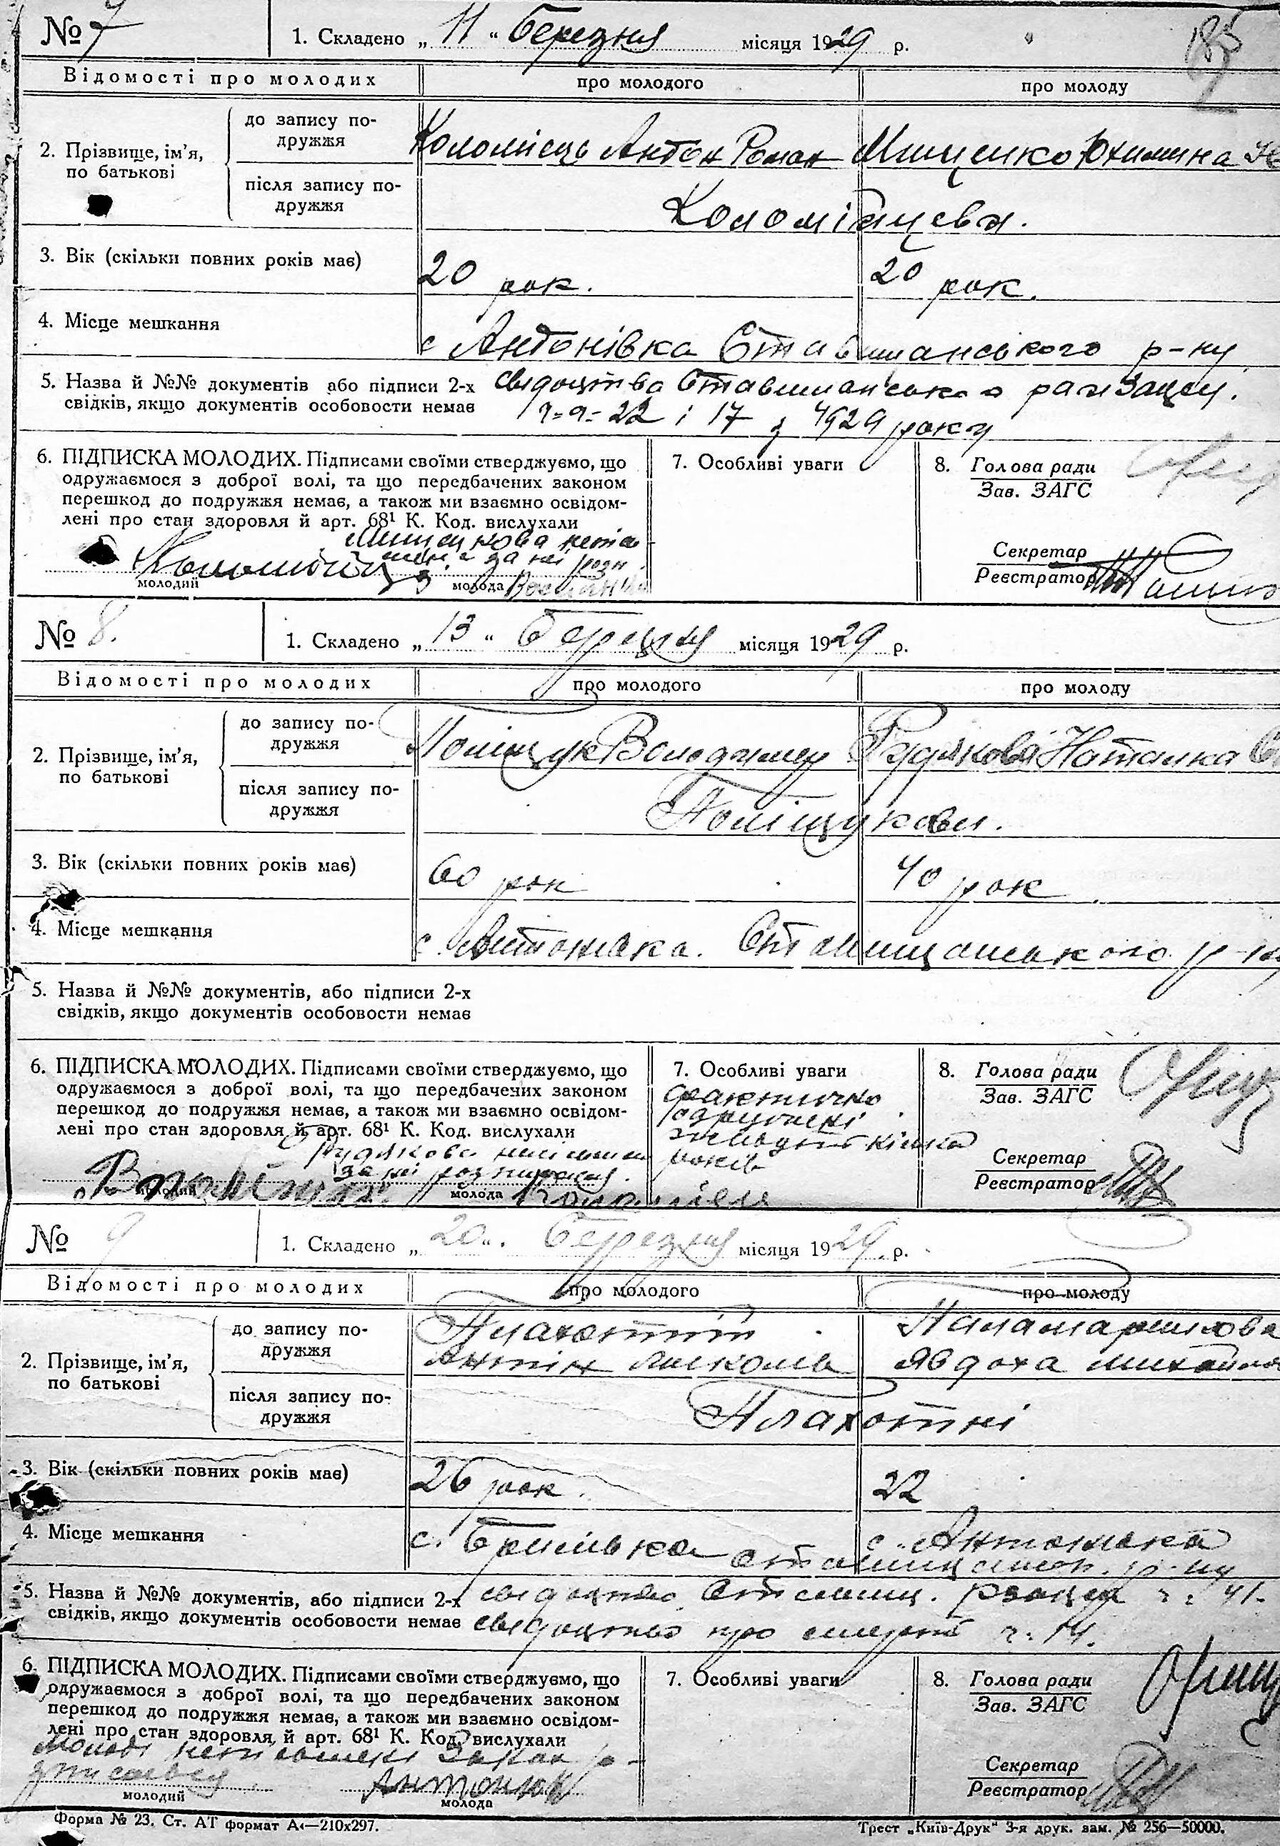 № 7
1. Складено „11“ березня місяця 1929 р.
185
Відомості про молодих
про молодого
про молоду
2. Прізвище, ім’я, по батькові
до запису подружжя
Коломієць Антон Роман
Мищенко Юхимина
після запису подружжя
Коломійцеви.
3. Вік (скільки повних років має)
20 рок.
20 рок.
4. Місце мешкання
с Антонівка Ставищанського р-ну
5. Назва й №№ документів або підписи 2-х
свідків, якщо документів особовости немає
свідоцтва Ставищансько
22 і 17 з 1929 року
6. ПІДПИСКА МОЛОДИХ. Підписами своїми стверджуємо, що
одружаємося з доброї волі, та що передбачених законом
перешкод до подружжя немає, а також ми взаємно освідом-
лені про стан здоровля й арт. 68¹ К. Код. вислухали
за неї розп
молодий
молода
7. Особливі уваги
8. Голова ради
Зав. ЗАГС
Секретар
Реєстратор
№ 8.
1. Складено „13“ березня місяця 1929 р.
Відомості про молодих
про молодого
про молоду
2. Прізвище, ім’я,
по батькові
до запису по-
дружжя
Поліщук Володимер
Рудякова Наталка
після запису по-
дружжя
Поліщукови.
3. Вік (скільки повних років має)
60 рок
40 рок
4. Місце мешкання
с. Антонівка. Ставищанського р-ну
5. Назва й №№ документів, або підписи 2-х
свідків, якщо документів особовости немає
6. ПІДПИСКА МОЛОДИХ. Підписами своїми стверджуємо, що
одружаємося з доброї волі, та що передбачених законом
перешкод до подружжя немає, а також ми взаємно освідом-
лені про стан здоровля й арт. 68¹ К. Код. вислухали
Рудякова
за неї розписався
молодий
молода
7. Особливі уваги
фактично
одружені
кілька
років
8. Голова ради
Зав. ЗАГС
Секретар
Реєстратор
№ 9
1. Складено „20“ березня місяця 1929 р.
Відомості про молодих
про молодого
про молоду
2. Прізвище, ім’я,
по батькові
до запису по-
дружжя
Плахотній
Антін Микола
Явдоха Михайл
після запису по-
дружжя
Плахотні
3. Вік (скільки повних років має)
26 рок.
22
4. Місце мешкання
с. Брилівка
с. Антонівка
р-ну
5. Назва й №№ документів, або підписи 2-х
свідків, якщо документів особовости немає
свідоцтво Ставищ. ч: 41.
свідоцтво про смерть ч: 14.
6. ПІДПИСКА МОЛОДИХ. Підписами своїми стверджуємо, що
одружаємося з доброї волі, та що передбачених законом
перешкод до подружжя немає, а також ми взаємно освідом-
лені про стан здоровля, й арт. 68¹ К. Код. вислухали
Молоді неписьмені
молодий
молода
7. Особливі уваги
8. Голова ради
Зав. ЗАГС
Секретар
Реєстратор
Форма № 23. Ст. АТ формат А4—210х297.
Трест „Київ-Друк“ 3-я друк. зам. № 256—50000.